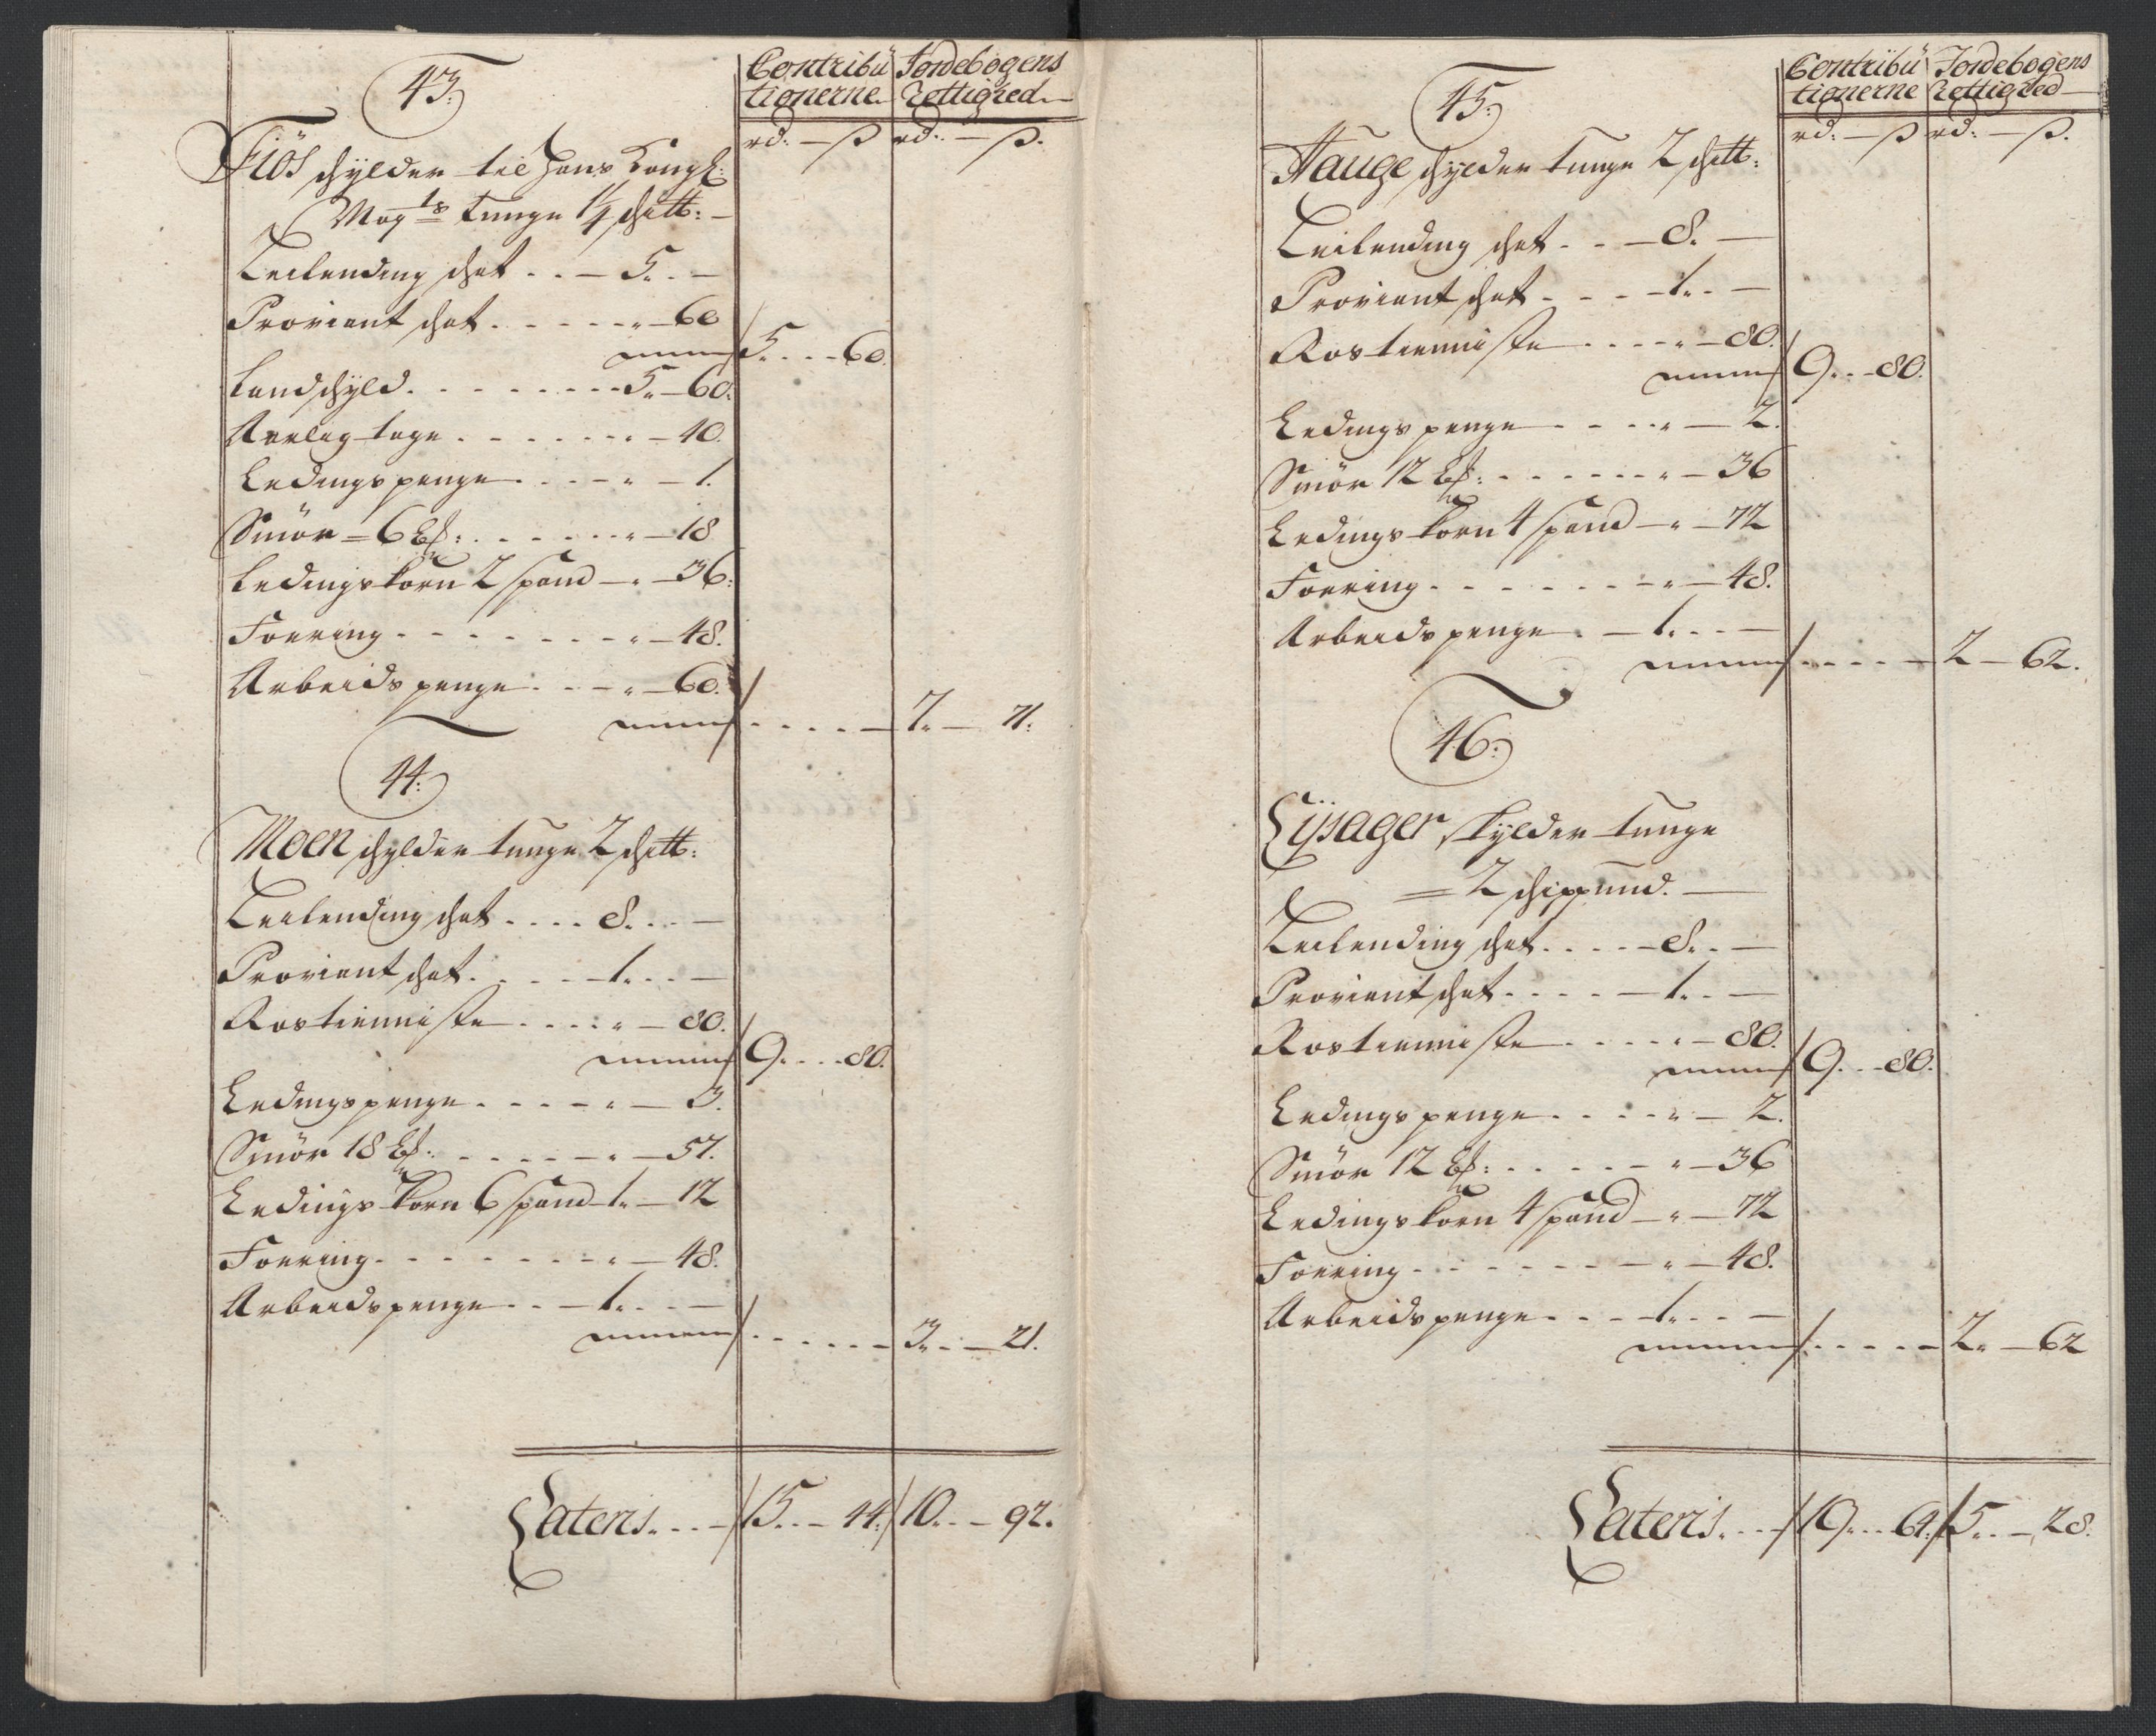 43.
Contribu
tionerne
Jordebogens
Rettighed
rd: — ß rd: — ß.
Fiös schylder til Hans Kongl:
May ts tunge 1¼ schttt:
Leilending schat . . — 5. . —
Proviant schat . . . . . . " — 60
5. . . . 60.
Landschyld . . . . . . . . . 5. — 60.
Aarlig tage . . . . . . . " — 40.
Ledings penge . . . . — " — 1.
Smör = 6 . . . . . . " — 18
Ledings korn 2 spand — " — 36.
Foering . . . . . . . . " — 48.
Arbeids penge . . . — " — 60.
. . . . . — 7. — 71.
44.
Moen schylder tunge 2 schtt:
Leilending schat . . . . 8. . . —
Proviant schat . . . . . — 1. . . —
Rostienniste . . . . : " — 80.
9. . . . 80.
Ledings penge . . . . — " — 3.
Smör 18 . . . . . . — " — 57.
Ledings korn 6 spand 1. — 12
Foering . . . . . . . — " — 48.
Arbeids penge . . — 1. . . —
. . . . . . — 3. . — 21.
Lateris . . . — 15. . — 44. 10. . — 92.
45.
Contribu
tionerne
Jordebogens
Rettighed
rd: — ß rd: — ß.
Hauge schylder tunge 2 schtt:
Leilending schat . . — 8. —
Proviant schat . . . . — 1. . —
Rostienniste . . . . " — 80.
9. . . 80.
Ledings penge — . . . . " — 2.
Smör 12 . . . . . . . " — 36
Ledings korn 4 spand — " — 72
Foering . . . . . . . — " — 48.
Arbeids penge . — 1. . . —
. . . . — 2 — 62.
46.
Lÿsager skylder tunge
= 2 schippund. —
Leilending schat . . . . — 8. . —
Proviant schat . . . . — 1. . —
Rostienniste . . . . . " — 80.
9. . . 80.
Ledings penge . . . . . " — 2.
Smör 12 . . . . . . — " — 36
Ledings korn 4 spand — " — 72
Foering . . . . . . . — " — 48.
Arbeids penge . . . — 1. . . —
. . . . . — 2. — 62
Lateris . . . — 19. . . 64. 5. . — 28.